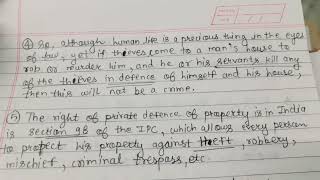 ④ So, although human life is a precious thing in the eyes
of law; yet if thieves come to a man's house to
rob or murder him, and he or his servants kill any
of the thieves in defence of himself and his house,
then this will not be a crime.
⑤ The right of private defence of property is in India
is section 98 of the IPC, which allows every person
to protect his property against theft, robbery,
mischief, criminal trespass, etc.